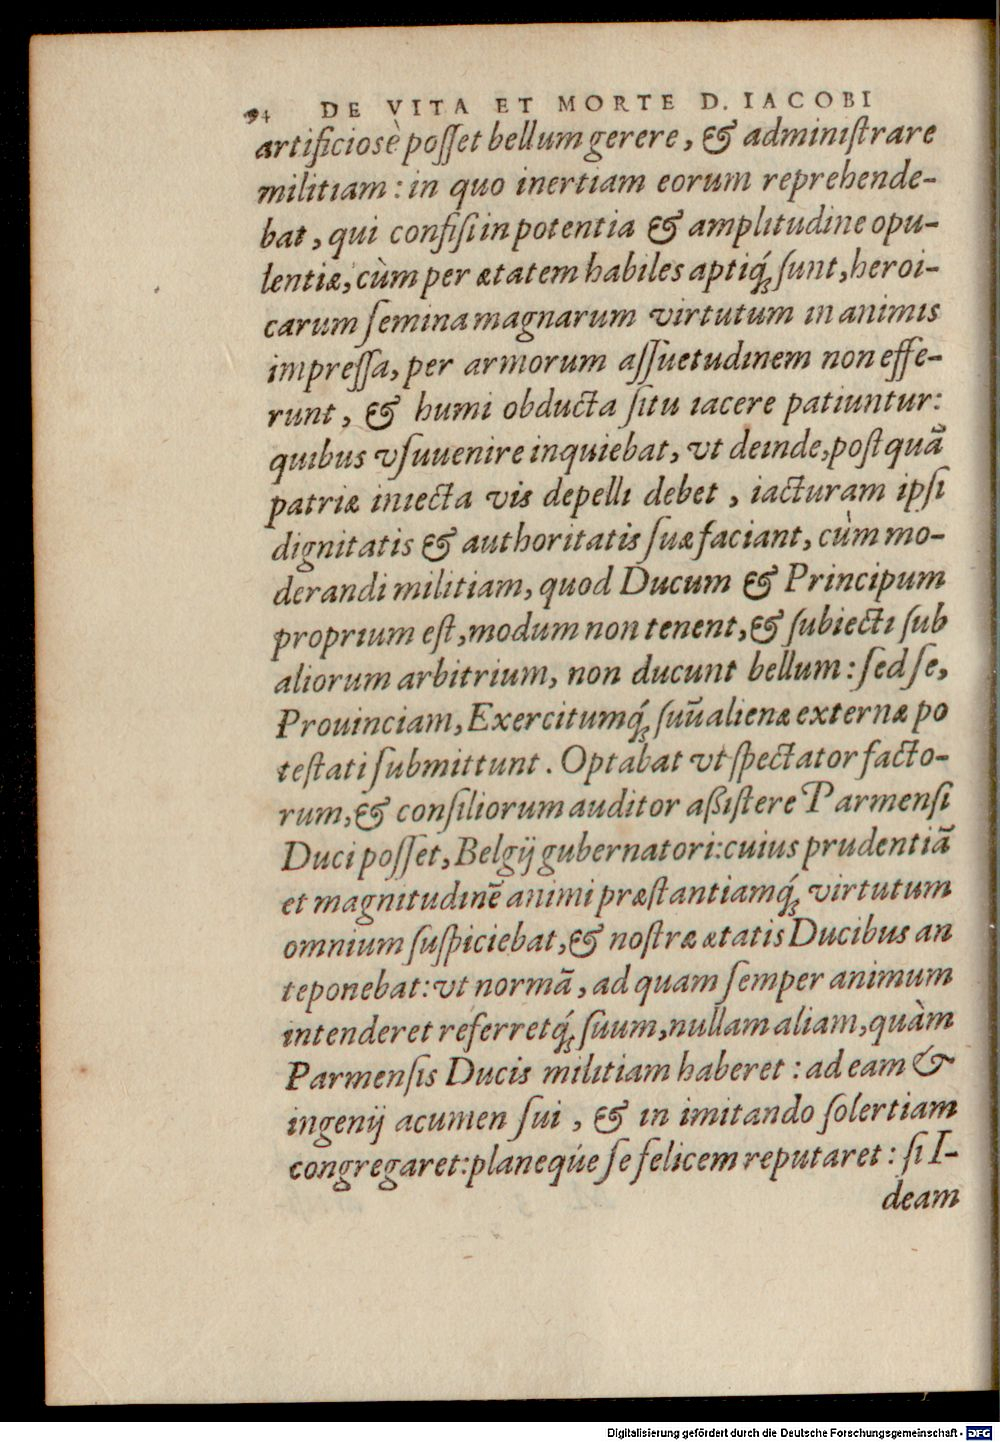 94 DE VITA ET MORTE D. IACOBI
artificiosè poſſet bellum gerere, & adminiſtrare
militiam: in quo inertiam eorum reprehende-
bat, qui confiſi in potentia & amplitudine opu-
lentiæ, cùm per ætatem habiles aptiq́ꝫ ſunt, heroi-
carum ſemina magnarum virtutum in animis
impreſſa, per armorum aſſuetudinem non effe-
runt, & humi obducta ſitu iacere patiuntur:
quibus vſuuenire inquiebat, vt deinde, poſtquā
patriæ iniecta vis depelli debet, iacturam ipſi
dignitatis & authoritatis ſuæ faciant, cùm mo-
derandi militiam, quod Ducum & Principum
proprium eſt, modum non tenent, & ſubiecti ſub
aliorum arbitrium, non ducunt bellum: ſed ſe,
Prouinciam, Exercitumq́ꝫ ſuū alienæ externæ po
teſtati ſubmittunt. Optabat vt ſpectator facto-
rum, & conſiliorum auditor aßiſtere Parmenſi
Duci poſſet, Belgij gubernatori: cuius prudentiā
et magnitudinē animi præſtantiamq́ꝫ virtutum
omnium ſuſpiciebat, & noſtræ ætatis Ducibus an
teponebat: vt normā, ad quam ſemper animum
intenderet referretq́ꝫ ſuum, nullam aliam, quàm
Parmenſis Ducis militiam haberet: ad eam &
ingenij acumen ſui, & in imitando ſolertiam
congregaret: planeq́ue ſe felicem reputaret: ſi I-
deam
Digitalisierung gefördert durch die Deutsche Forschungsgemeinschaft - DFG